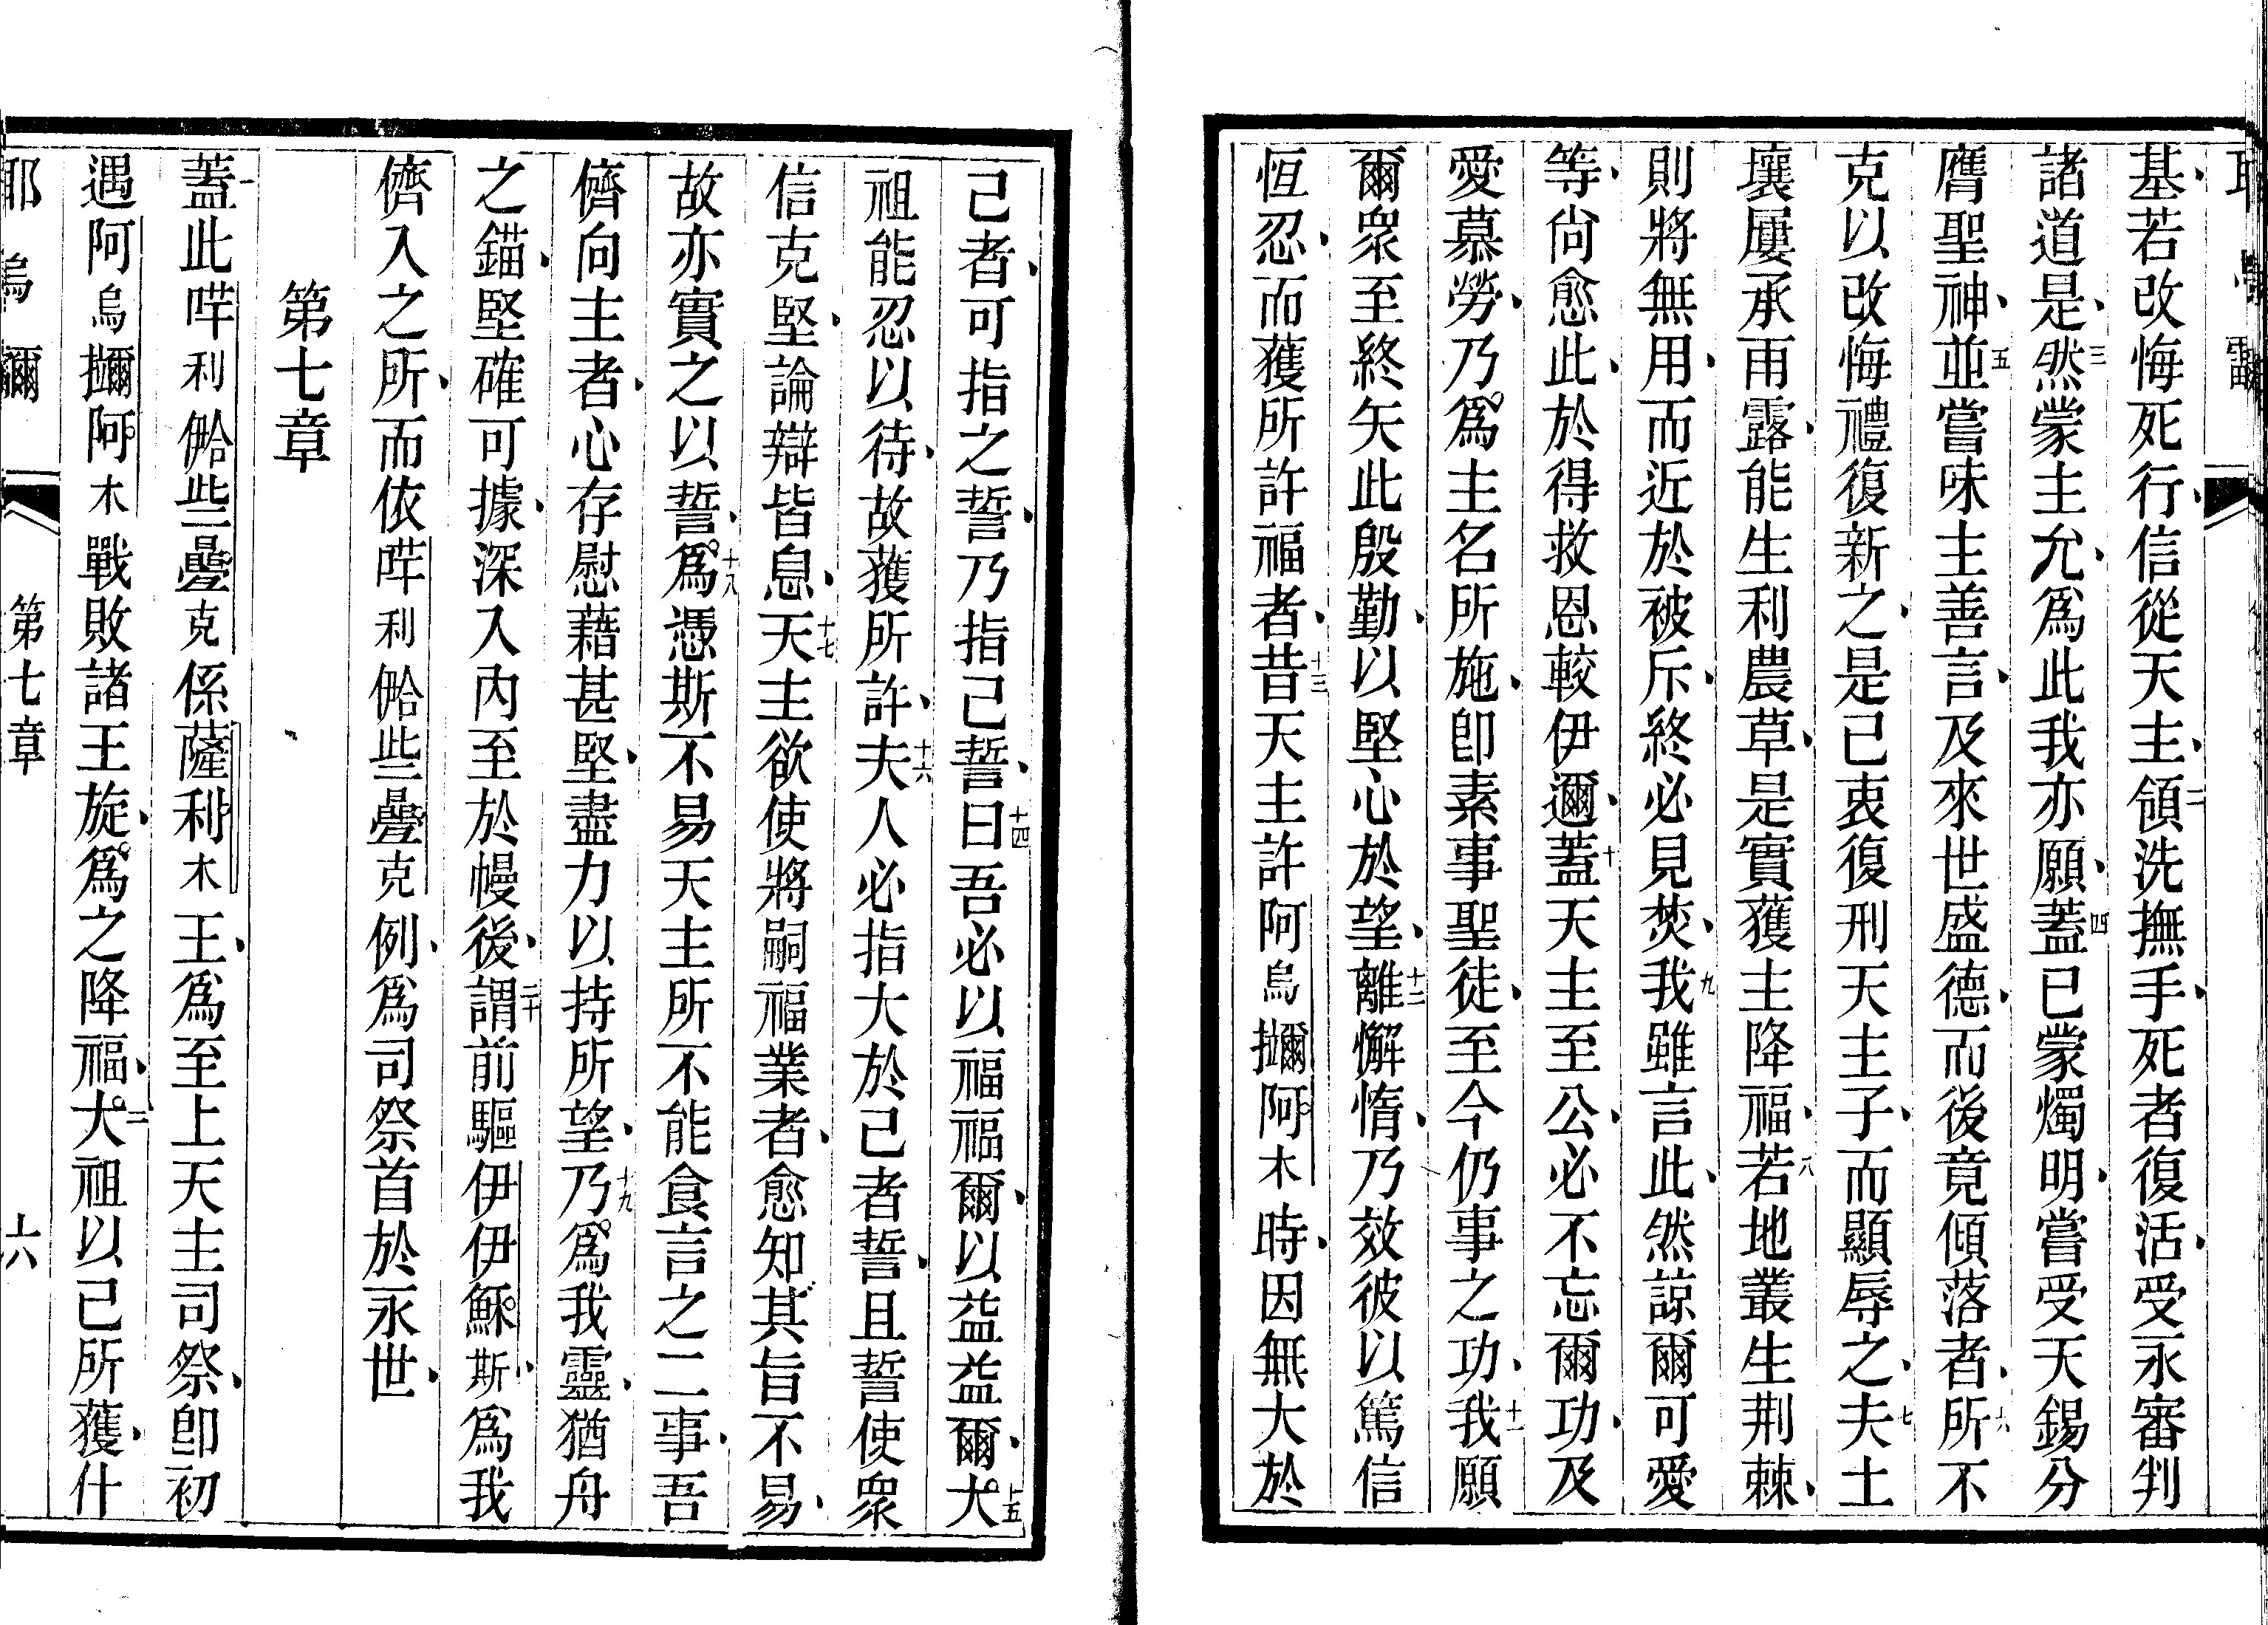 基若改悔死行信從天主二領洗撫手死者復活受永審判
諸道是三然蒙主允爲此我亦願四蓋已蒙燭明嘗受天錫分
膺聖神五並嘗味主善言及來世盛德而後竟傾落者六所不
克以改悔禮復新之是已衷復刑天主子而顯辱之七夫土
壤屢承雨露能生利農草是實獲主降福八若地叢生荆棘
則將無用而近於被斥終必見焚九我雖言此然諒爾可愛
等尙愈此於得救恩較伊邇十蓋天主至公必不忘爾功及
愛慕勞乃爲主名所施卽素事聖徒至今仍事之功十一我願
爾衆至終矢此殷勤以堅心於望十二離懈惰乃效彼以篤信
恆忍而獲所許福者十三昔天主許阿烏擟阿木時因無大於
己者可指之誓乃指己誓十四曰吾必以福福爾以益益爾十五大
祖能忍以待故獲所許十六夫人必指大於己者誓且誓使衆
信克堅論辯皆息十七天主欲使將嗣福業者愈知其旨不易
故亦實之以誓十八爲憑斯不易天主所不能食言之二事吾
儕向主者心存慰藉甚堅盡力以持所望十九乃爲我靈猶舟
之錨堅確可據深入內至於幔後二十謂前驅伊伊穌斯爲我
儕入之所而依哶利𠌥些曡克例爲司祭首於永世
第七章
一蓋此哶利𠌥些曡克係薩利木王爲至上天主司祭卽初
遇阿烏擟阿木戰敗諸王旋爲之降福二大祖以己所獲什
耶烏爾 第七章 六